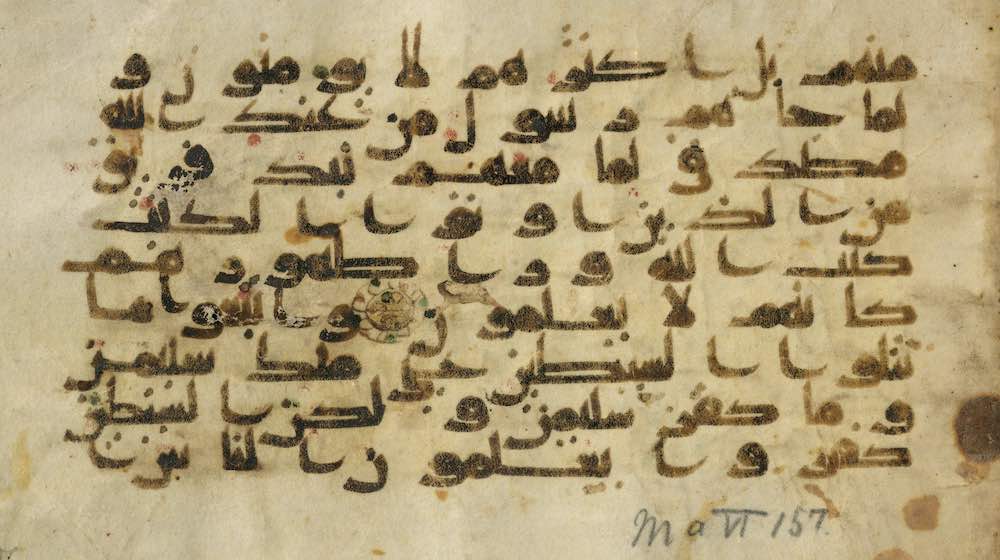 منهم بل اكثرهم لا يؤمنون و
لما جاهم رسول من عند الله
مصدق لما معهم نبذ فريق
من الذين اوتوا الكتب
كتب الله ورا ظهورهم
كانهم لا يعلمون واتبعوا ما
تتلوا الشيطين على ملك سليمن
وما كفر سليمن ولكن الشيطين
كفروا يعلمون الناس
Ma VI 157.